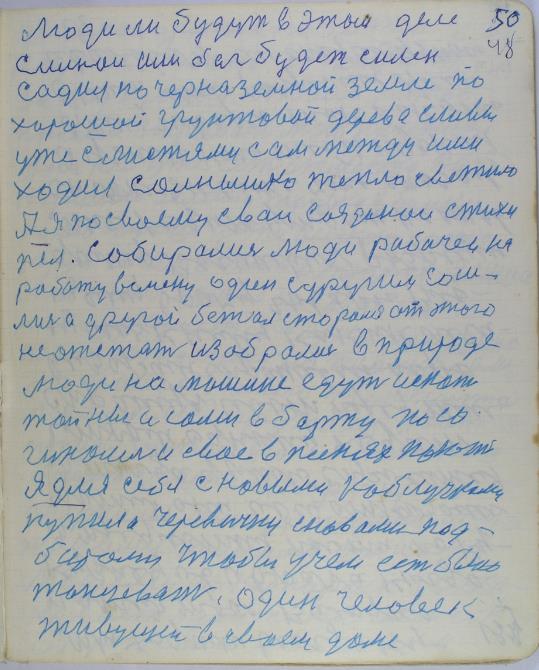 Люди ли будут в этом деле 50
48
силнои или бог будет силен
садил по черназемной земле по
хорошой грунтовой дерева сливы
уже слистями сам между ими
ходил солнышко тепло светило
А я по своему сваи созданои стихи
пел. Собиралис люди рабочеи на
работу всмену один сдругим сош-
лис а другой бежал сторано от этого
не
избралис в природе
люди на машине едут
тайны и сами в баржу
и свое в песнях
Я для себя с новыми каблучками
купила черевички сновами под-
битами чтобы
танцеват. один человек
живущей в своем доме